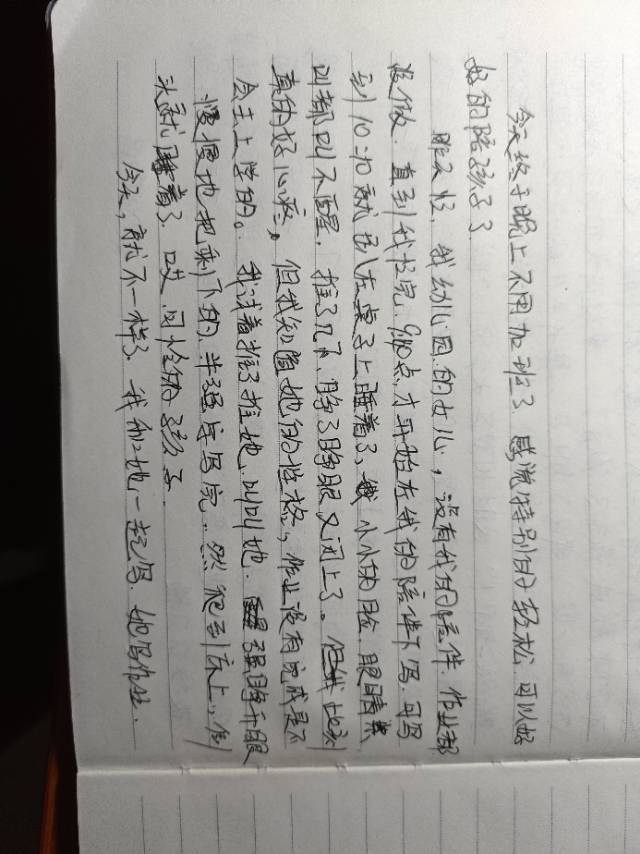 今天终于晚上不用加班了 感觉特别的轻松 可以好
好的陪孩子了
昨天忙, 我幼儿园的女儿, 没有我的陪伴. 作业都
没做. 直到我忙完. 9:40点, 才开始在我的陪伴下写. 可写
到10:10就趴在桌子上睡着了, 小小的脸 眼睛
叫都叫不醒. 推了几下, 睁了睁眼又闭上了。
真的好心疼。但我知道她的性格, 作业没有完成是不
会去上学的。我试着推了推她, 叫叫她. 强睁开眼
慢慢地把剩下的半张字写完. 然 爬到床上, 倒
头就睡着了. 哎. 可怜的孩子.
今天, 就不一样了. 我和她一起写. 她写作业.